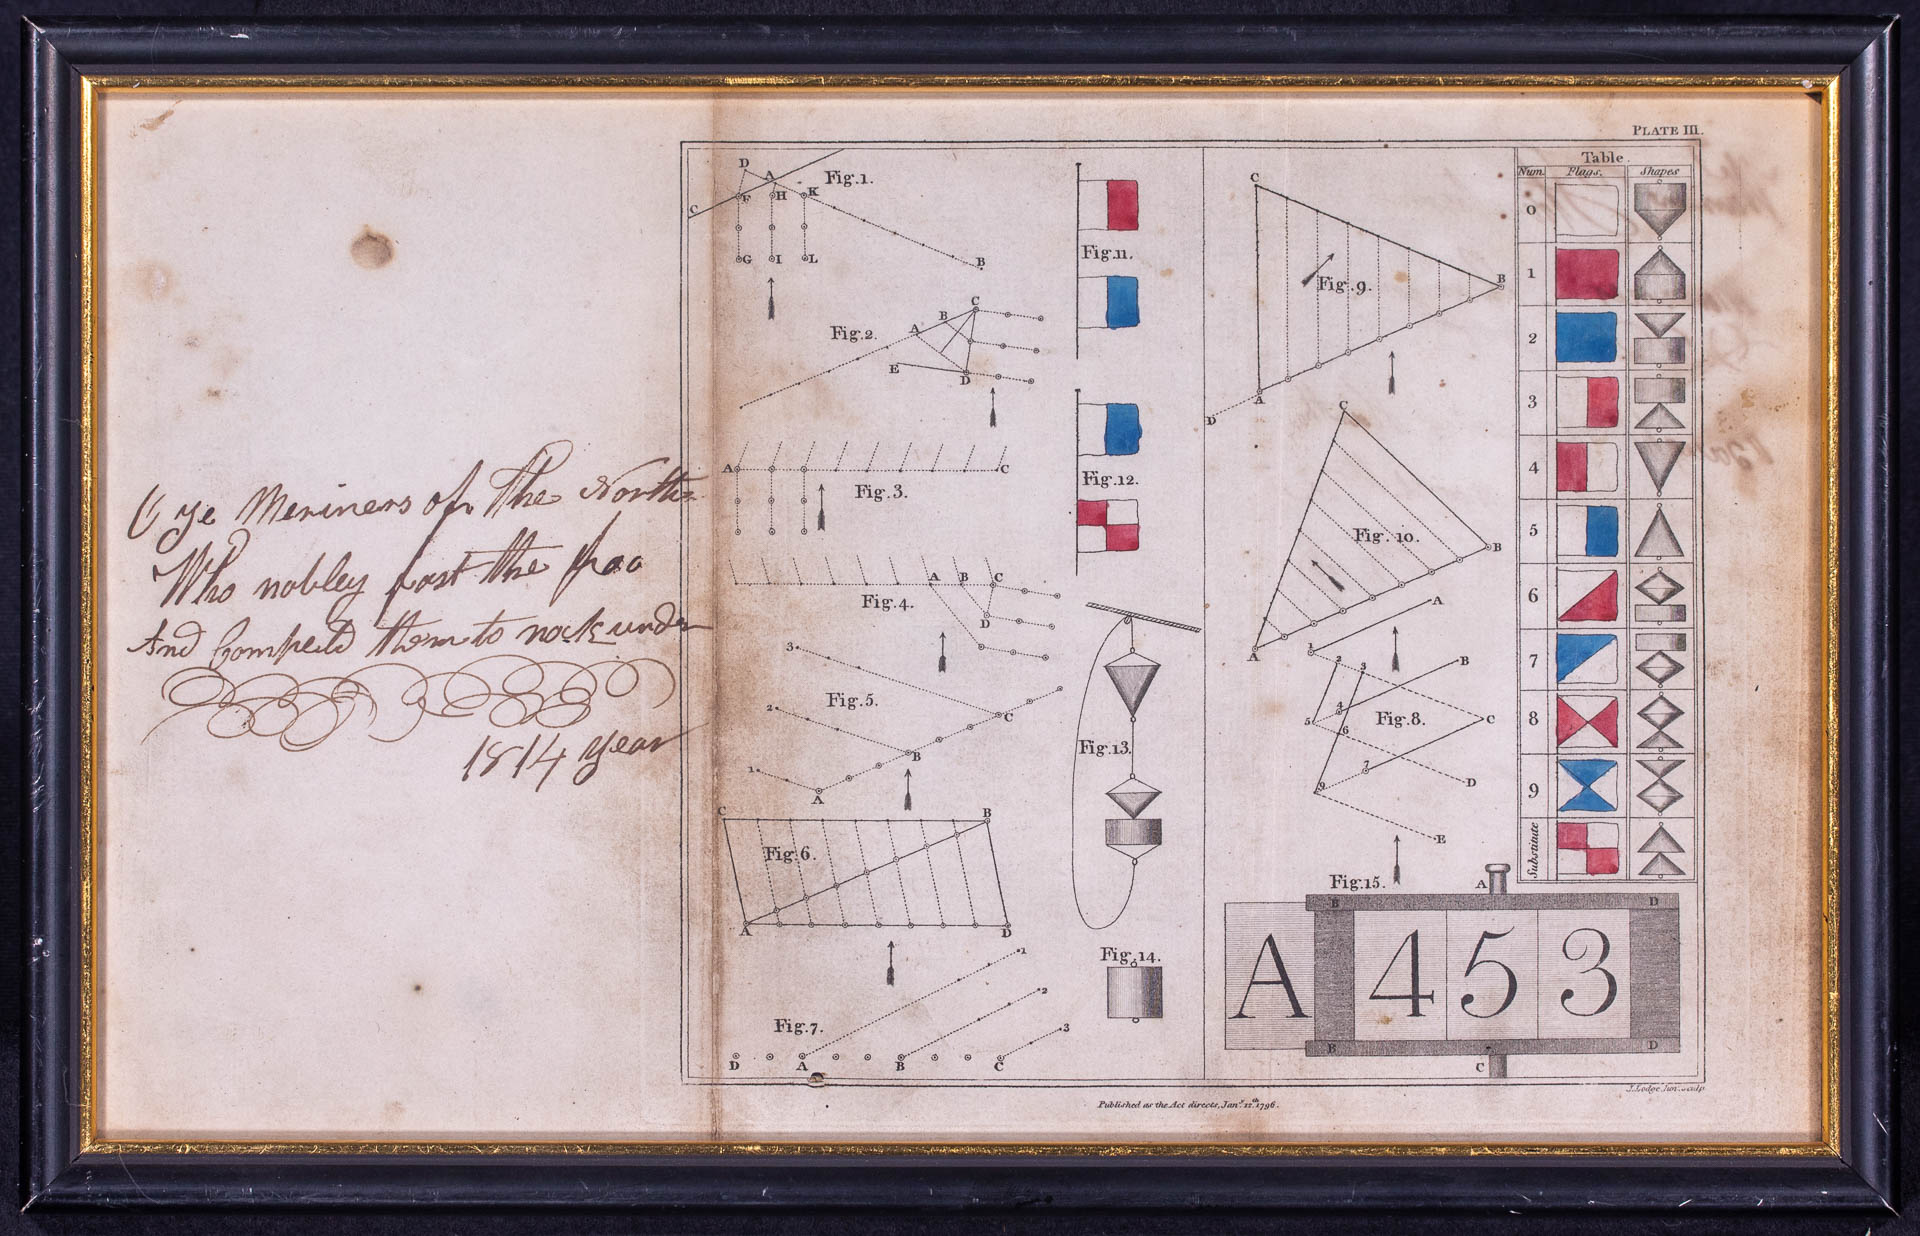 PLATE III.
O ye Meriners of the North
Who nobley fast the foo
And Compeld them to nock under
1814 year
Fig. 1.
D
A
C
F
H
K
G
I
L
B
Fig. 2.
A
B
C
E
D
Fig. 3.
A
C
Fig. 4.
A
B
C
D
Fig. 5.
3
2
1
A
B
C
Fig. 6.
C
B
A
D
Fig. 7.
1
2
3
D
A
B
C
Fig. 11.
Fig. 12.
Fig. 13.
Fig. 14.
Fig. 9.
C
B
A
D
Fig. 10.
C
B
A
Fig. 8.
A
1
2
3
B
4
5
6
C
7
D
9
E
Fig. 15.
A
B
D
A 4 5 3
B
D
C
Table.
Num. Flags. Shapes
0
1
2
3
4
5
6
7
8
9
Substitute
J. Lodge Jun. sculp
Published as the Act directs, Jany. 12th 1796.